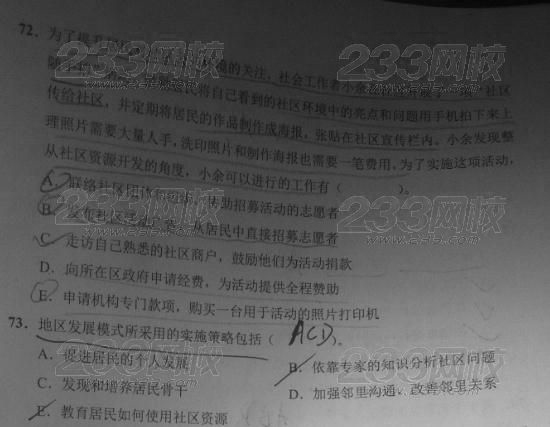 72. 为了提升
环境的关注，社会工作者小余
随手拍 民将自己看到的社区环境中的亮点和问题用手机拍下来上
传给社区，并定期将居民的作品制作成海报，张贴在社区宣传栏内。小余发现整
理照片需要大量人手，洗印照片和制作海报也需要一笔费用，为了实施这项活动，
从社区资源开发的角度，小余可以进行的工作有（ ）。
A. 联络社区团体 协助招募活动的志愿者
B. 发布社区 从居民中直接招募志愿者
C. 走访自己熟悉的社区商户，鼓励他们为活动捐款
D. 向所在区政府申请经费，为活动提供全程赞助
E. 申请机构专门款项，购买一台用于活动的照片打印机
73. 地区发展模式所采用的实施策略包括（ ACD ）。
A. 促进居民的个人发展 B. 依靠专家的知识分析社区问题
C. 发现和培养居民骨干 D. 加强邻里沟通，改善邻里关系
E. 教育居民如何使用社区资源
233网校
www.233.com